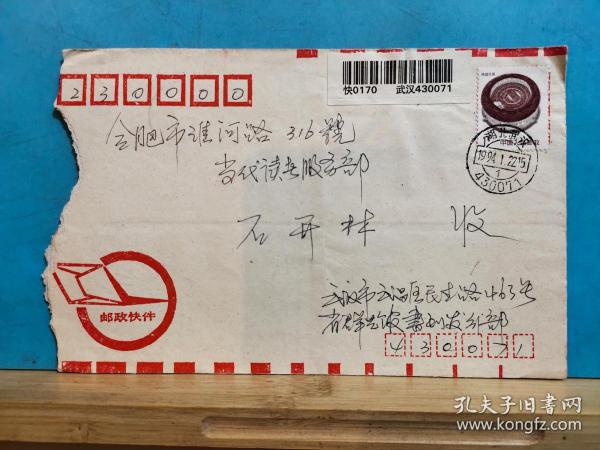 快0170 武汉430071
230000
合肥市淮河路316號
当代读者服务部
石开林 收
湖北武汉
1994.1.22.15
1
430071
邮政快件
武汉市武昌区民主路463号
省群艺馆书刊发行部
430071
孔夫子旧书网
www.kongfz.com